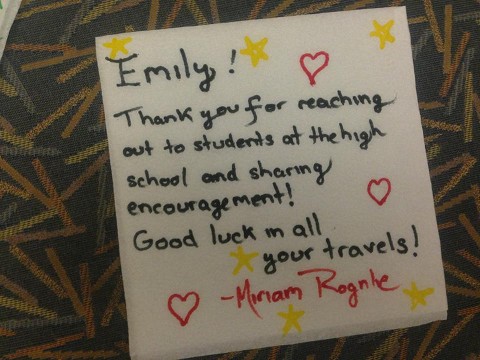 Emily!
Thank you for reaching
out to students at the high
school and sharing
encouragement!
Good luck in all
your travels!
-Miriam Rognlie